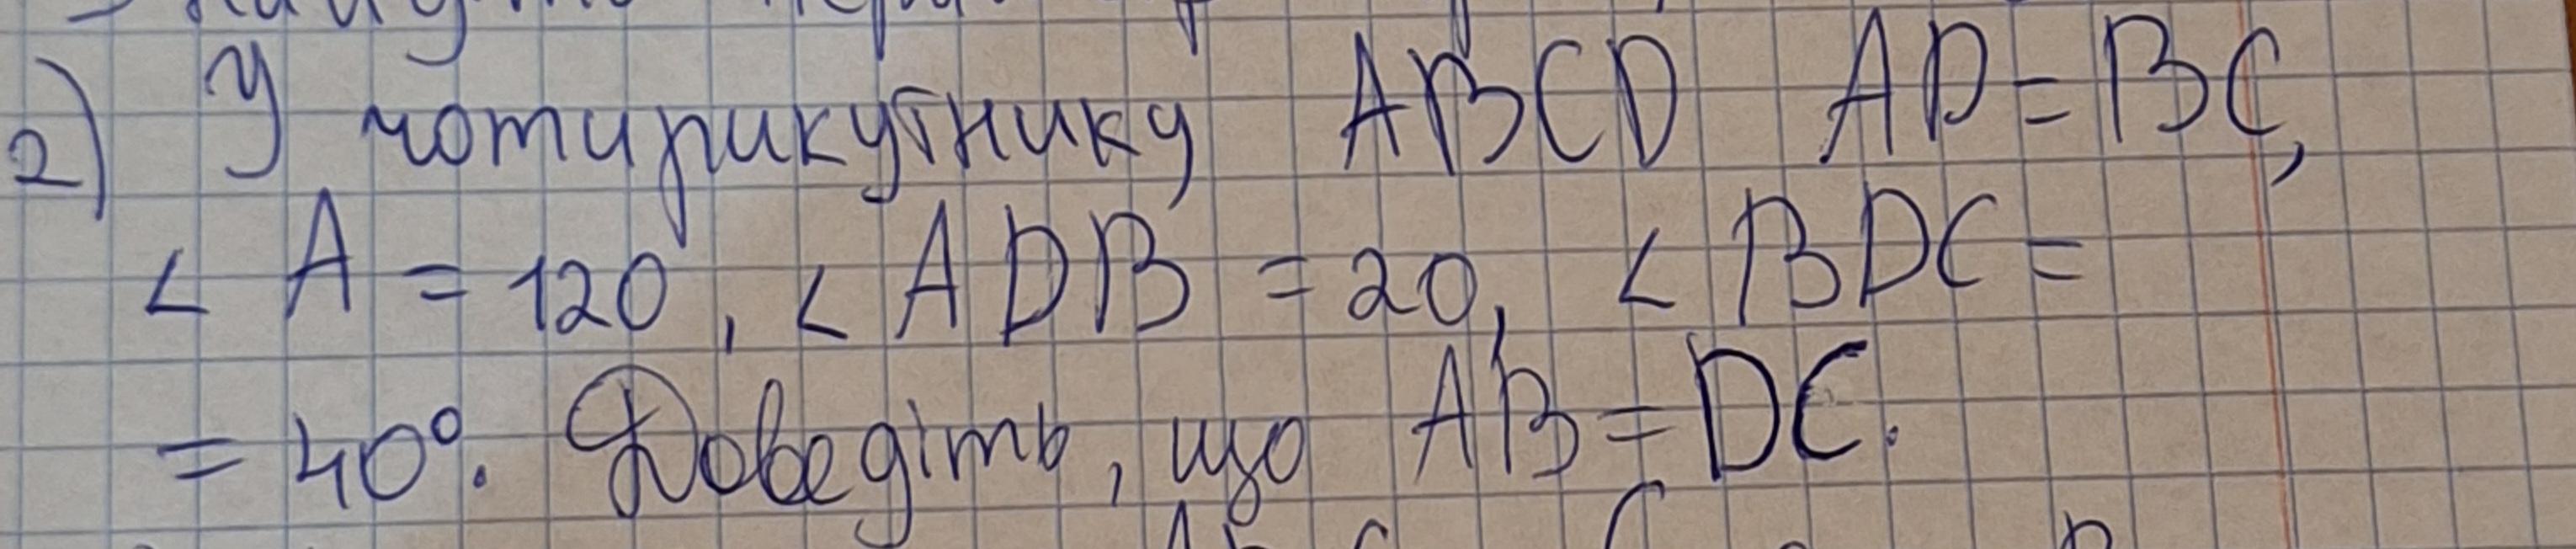 2) У чотирикутнику ABCD AD = BC,
< A = 120, < ADB = 20, < BDC =
= 40°. Доведіть, що AB = DC.